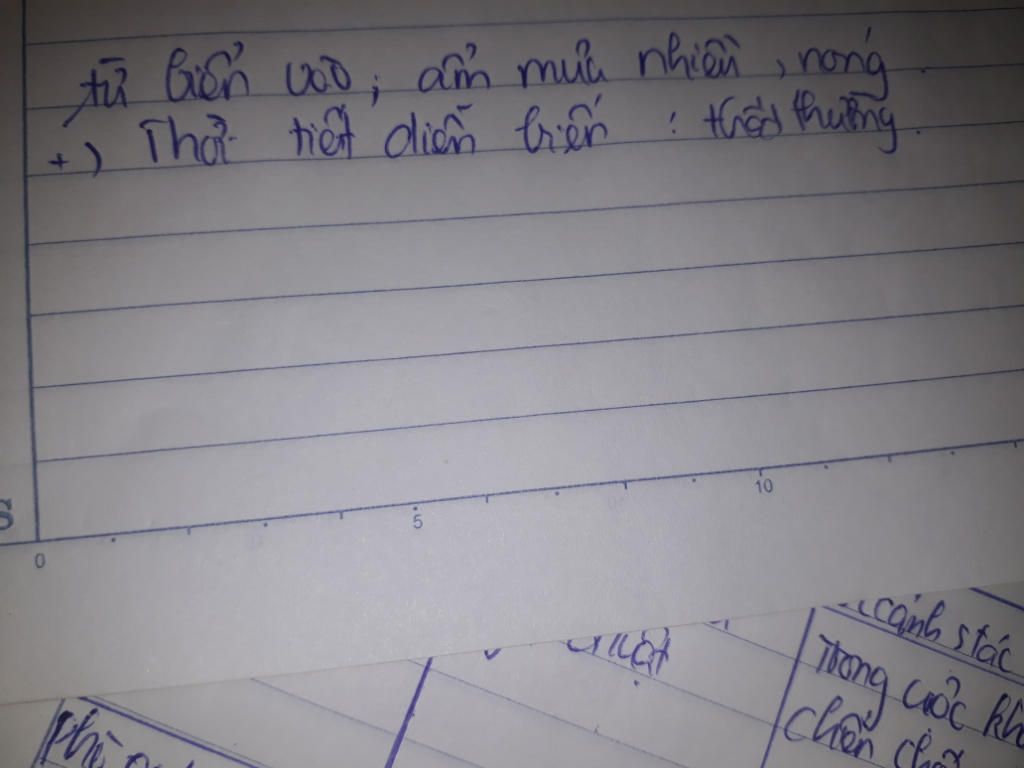 từ biển vào; ẩm mưa nhiều, nóng.
+) Thời tiết diễn biến: thất thường.
S
0 5 10
cảnh sắc
Trong cuộc